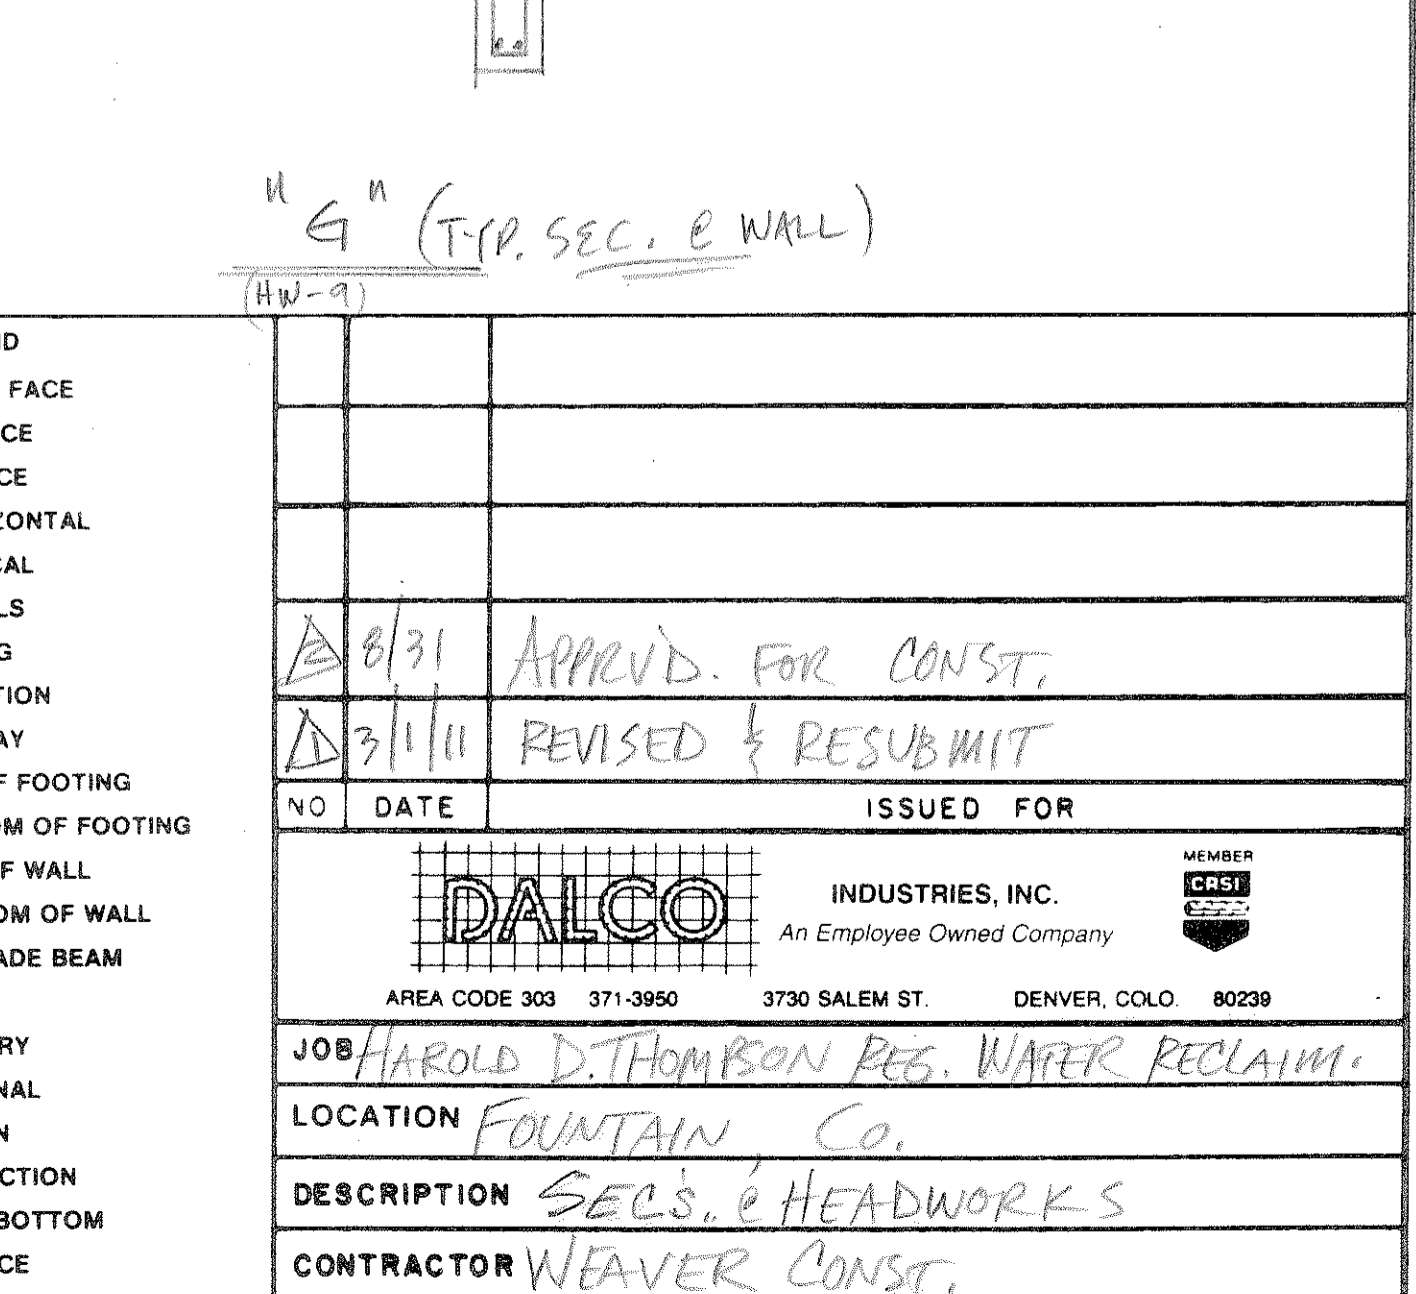 "G" (TYP. SEC. @ WALL)
(HW-9)
ID
FACE
CE
CE
ZONTAL
CAL
LS
G
TION
AY
F FOOTING
OM OF FOOTING
F WALL
OM OF WALL
ADE BEAM
RY
NAL
N
CTION
BOTTOM
CE
2 8/31 APPRV'D. FOR CONST.
1 3/1/11 REVISED & RESUBMIT
NO DATE ISSUED FOR
DALCO INDUSTRIES, INC.
An Employee Owned Company
MEMBER
CRSI
AREA CODE 303 371-3950 3730 SALEM ST. DENVER, COLO. 80239
JOB HAROLD D. THOMPSON REG. WATER RECLAIM.
LOCATION FOUNTAIN CO.
DESCRIPTION SEC'S. @ HEADWORKS
CONTRACTOR WEAVER CONST.